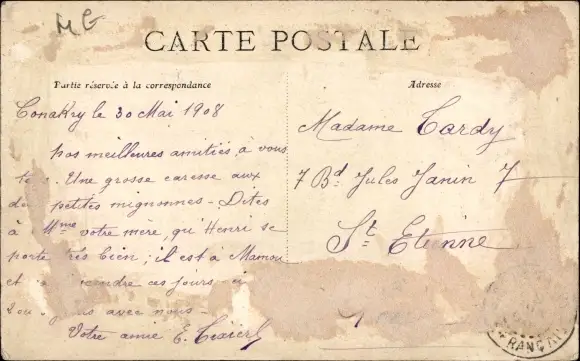 MG
CARTE POSTALE
Partie réservée à la correspondance
Adresse
Conakry le 30 Mai 1908
nos meilleures amitiés, à vous
Une grosse caresse aux
petites mignonnes - Dites
à Mme votre mère, qu'Henri se
porte très bien ; il est à Mamou
et ces jours-ci
avec nous -
Votre amie E.
Madame Tardy
7 Bd. Jules Janin 7
St. Etienne
FRANÇAI